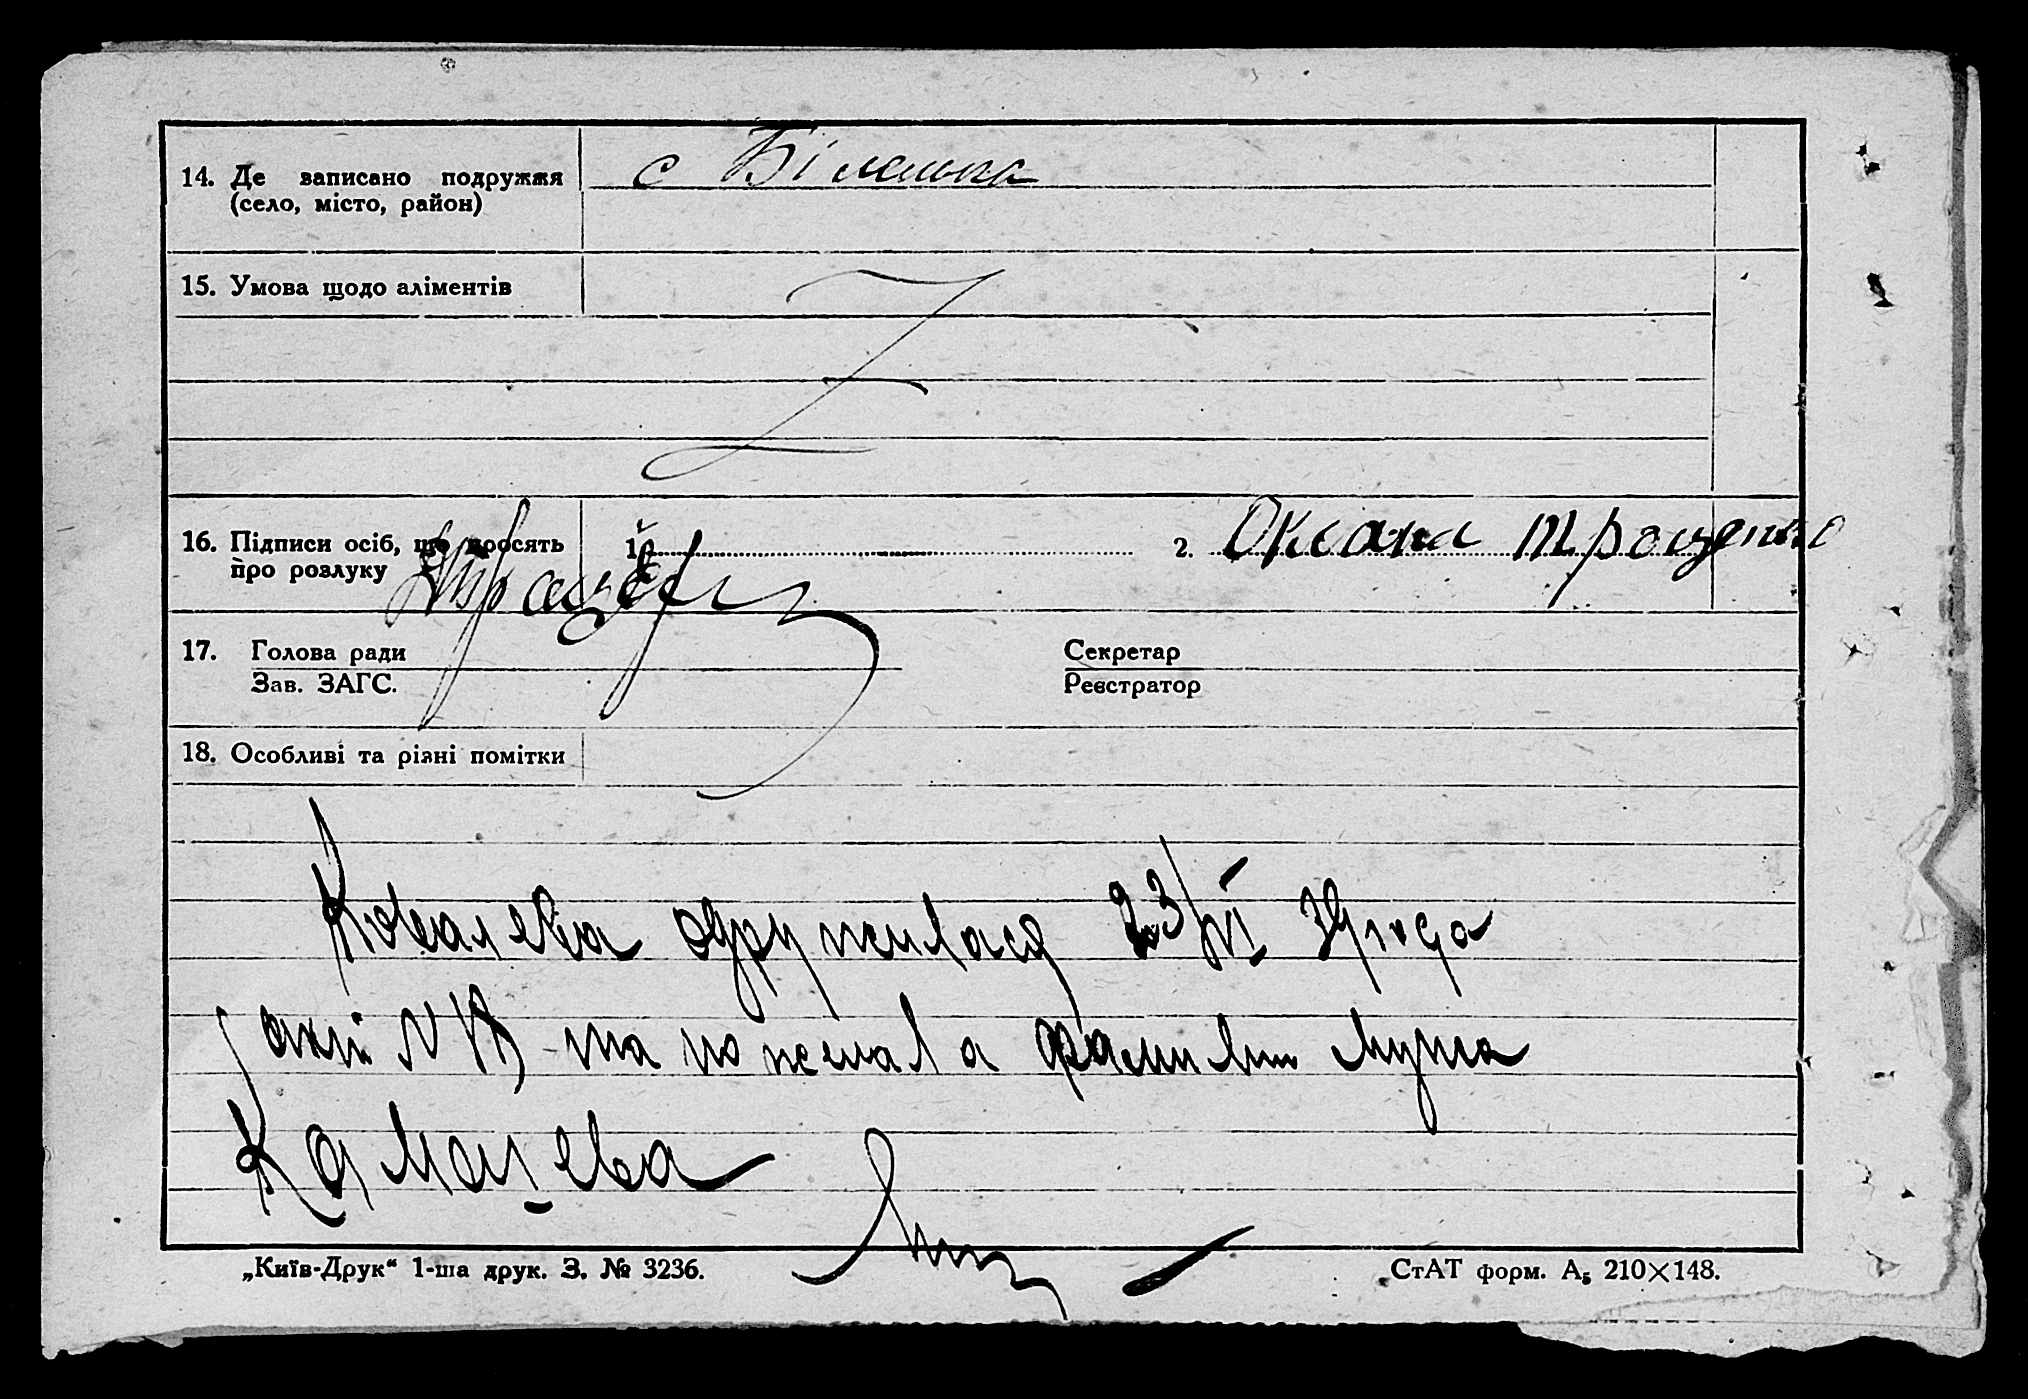 14. Де записано подружжя
(село, місто, район)
с Біленька
15. Умова щодо аліментів
Z
16. Підписи осіб, що просять
про розлуку
1.
2. Оксана Трощенко
17. Голова ради
Зав. ЗАГС.
Секретар
Реєстратор
18. Особливі та різні помітки
Ковалева одружилася 23/VI
акт N та пожелала фамилию мужа
Камашева
„Київ-Друк“ 1-ша друк. З. № 3236.
СтАТ форм. А₅ 210×148.